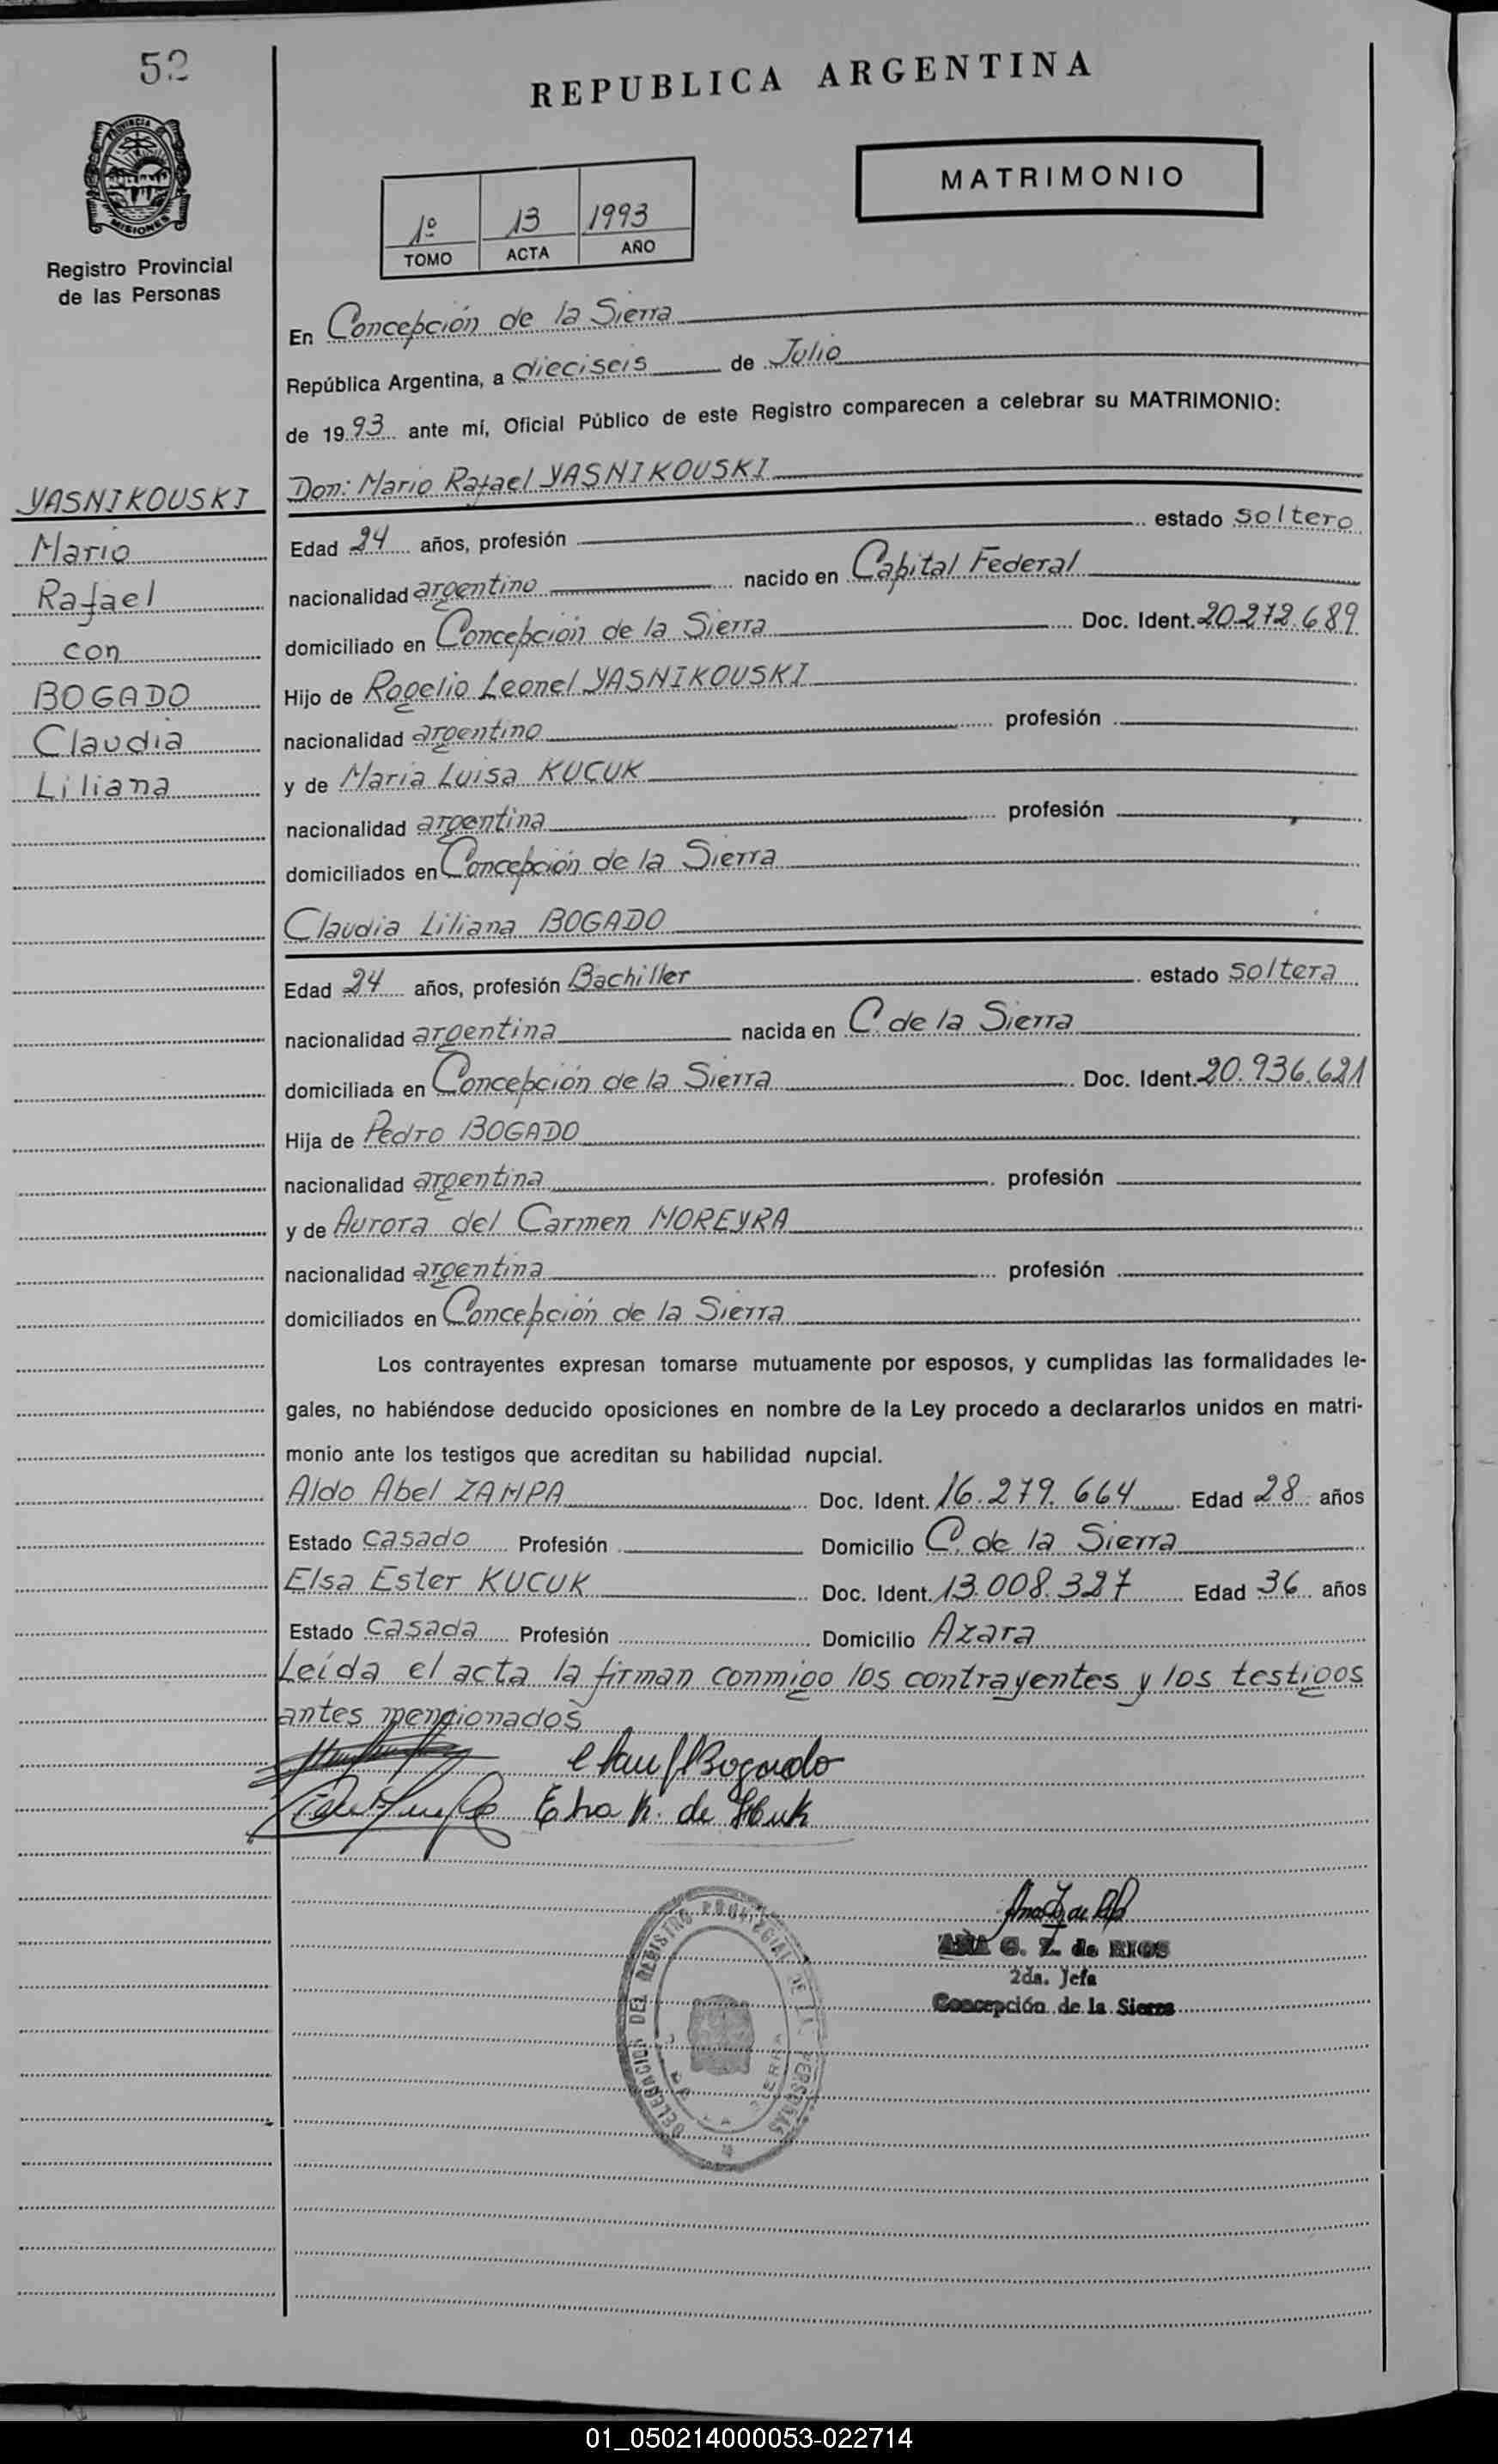 52
REPUBLICA ARGENTINA
PROVINCIA DE
MISIONES
MATRIMONIO
1º 13 1993
TOMO ACTA AÑO
Registro Provincial
de las Personas
En Concepción de la Sierra
República Argentina, a dieciseis de Julio
de 1993 ante mí, Oficial Público de este Registro comparecen a celebrar su MATRIMONIO:
YASNIKOUSKI
Mario
Rafael
con
BOGADO
Claudia
Liliana
Don: Mario Rafael YASNIKOUSKI
Edad 24 años, profesión estado soltero
nacionalidad argentino nacido en Capital Federal
domiciliado en Concepción de la Sierra Doc. Ident. 20.272.689
Hijo de Rogelio Leonel YASNIKOUSKI
nacionalidad argentino profesión
y de María Luisa KUCUK
nacionalidad argentina profesión
domiciliados en Concepción de la Sierra
Claudia Liliana BOGADO
Edad 24 años, profesión Bachiller estado soltera
nacionalidad argentina nacida en C. de la Sierra
domiciliada en Concepción de la Sierra Doc. Ident. 20.936.621
Hija de Pedro BOGADO
nacionalidad argentina profesión
y de Aurora del Carmen MOREYRA
nacionalidad argentina profesión
domiciliados en Concepción de la Sierra
Los contrayentes expresan tomarse mutuamente por esposos, y cumplidas las formalidades le-
gales, no habiéndose deducido oposiciones en nombre de la Ley procedo a declararlos unidos en matri-
monio ante los testigos que acreditan su habilidad nupcial.
Aldo Abel ZAMPA Doc. Ident. 16.279.664 Edad 28 años
Estado casado Profesión Domicilio C. de la Sierra
Elsa Ester KUCUK Doc. Ident. 13.008.327 Edad 36 años
Estado casada Profesión Domicilio Azara
Leída el acta la firman conmigo los contrayentes y los testigos
antes mencionados
Bogado
Elsa K. de
ANA G. Z. de RIOS
2da. Jefa
Concepción de la Sierra
DELEGACION DEL REGISTRO PROVINCIAL DE LAS PERSONAS
01_050214000053-022714